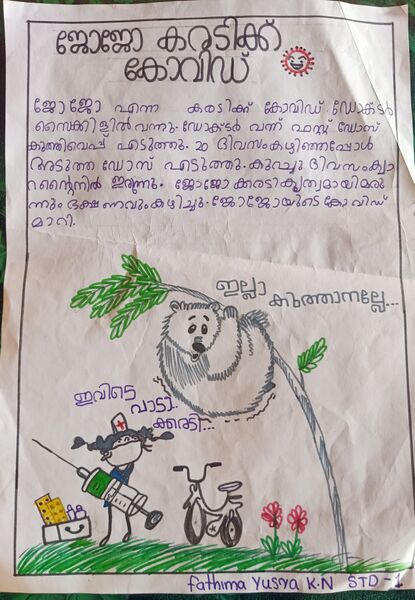 ജോജോ കരടിക്ക്
കോവിഡ്
ജോജോ എന്ന കരടിക്ക് കോവിഡ്. ഡോക്ടർ
സൈക്കിളിൽ വന്നു. ഡോക്ടർ വന്ന് ഫസ്റ്റ് ഡോസ്
കുത്തിവെപ്പ് എടുത്തു. 20 ദിവസംകഴിഞ്ഞപ്പോൾ
അടുത്ത ഡോസ് എടുത്തു. കുറച്ചു ദിവസംക്വാ
റന്റൈനിൽ ഇരുന്നു. ജോജോ കരടികൃത്യമായിമരു
ന്നും ഭക്ഷണവുംകഴിച്ചു. ജോജോയുടെ കോവിഡ്
മാറി.
ഇല്ലാ
കുത്താനല്ലേ...
ഇവിടെ
വാടാ..
ക്കരടി...
fathima Yusra K.N STD-1